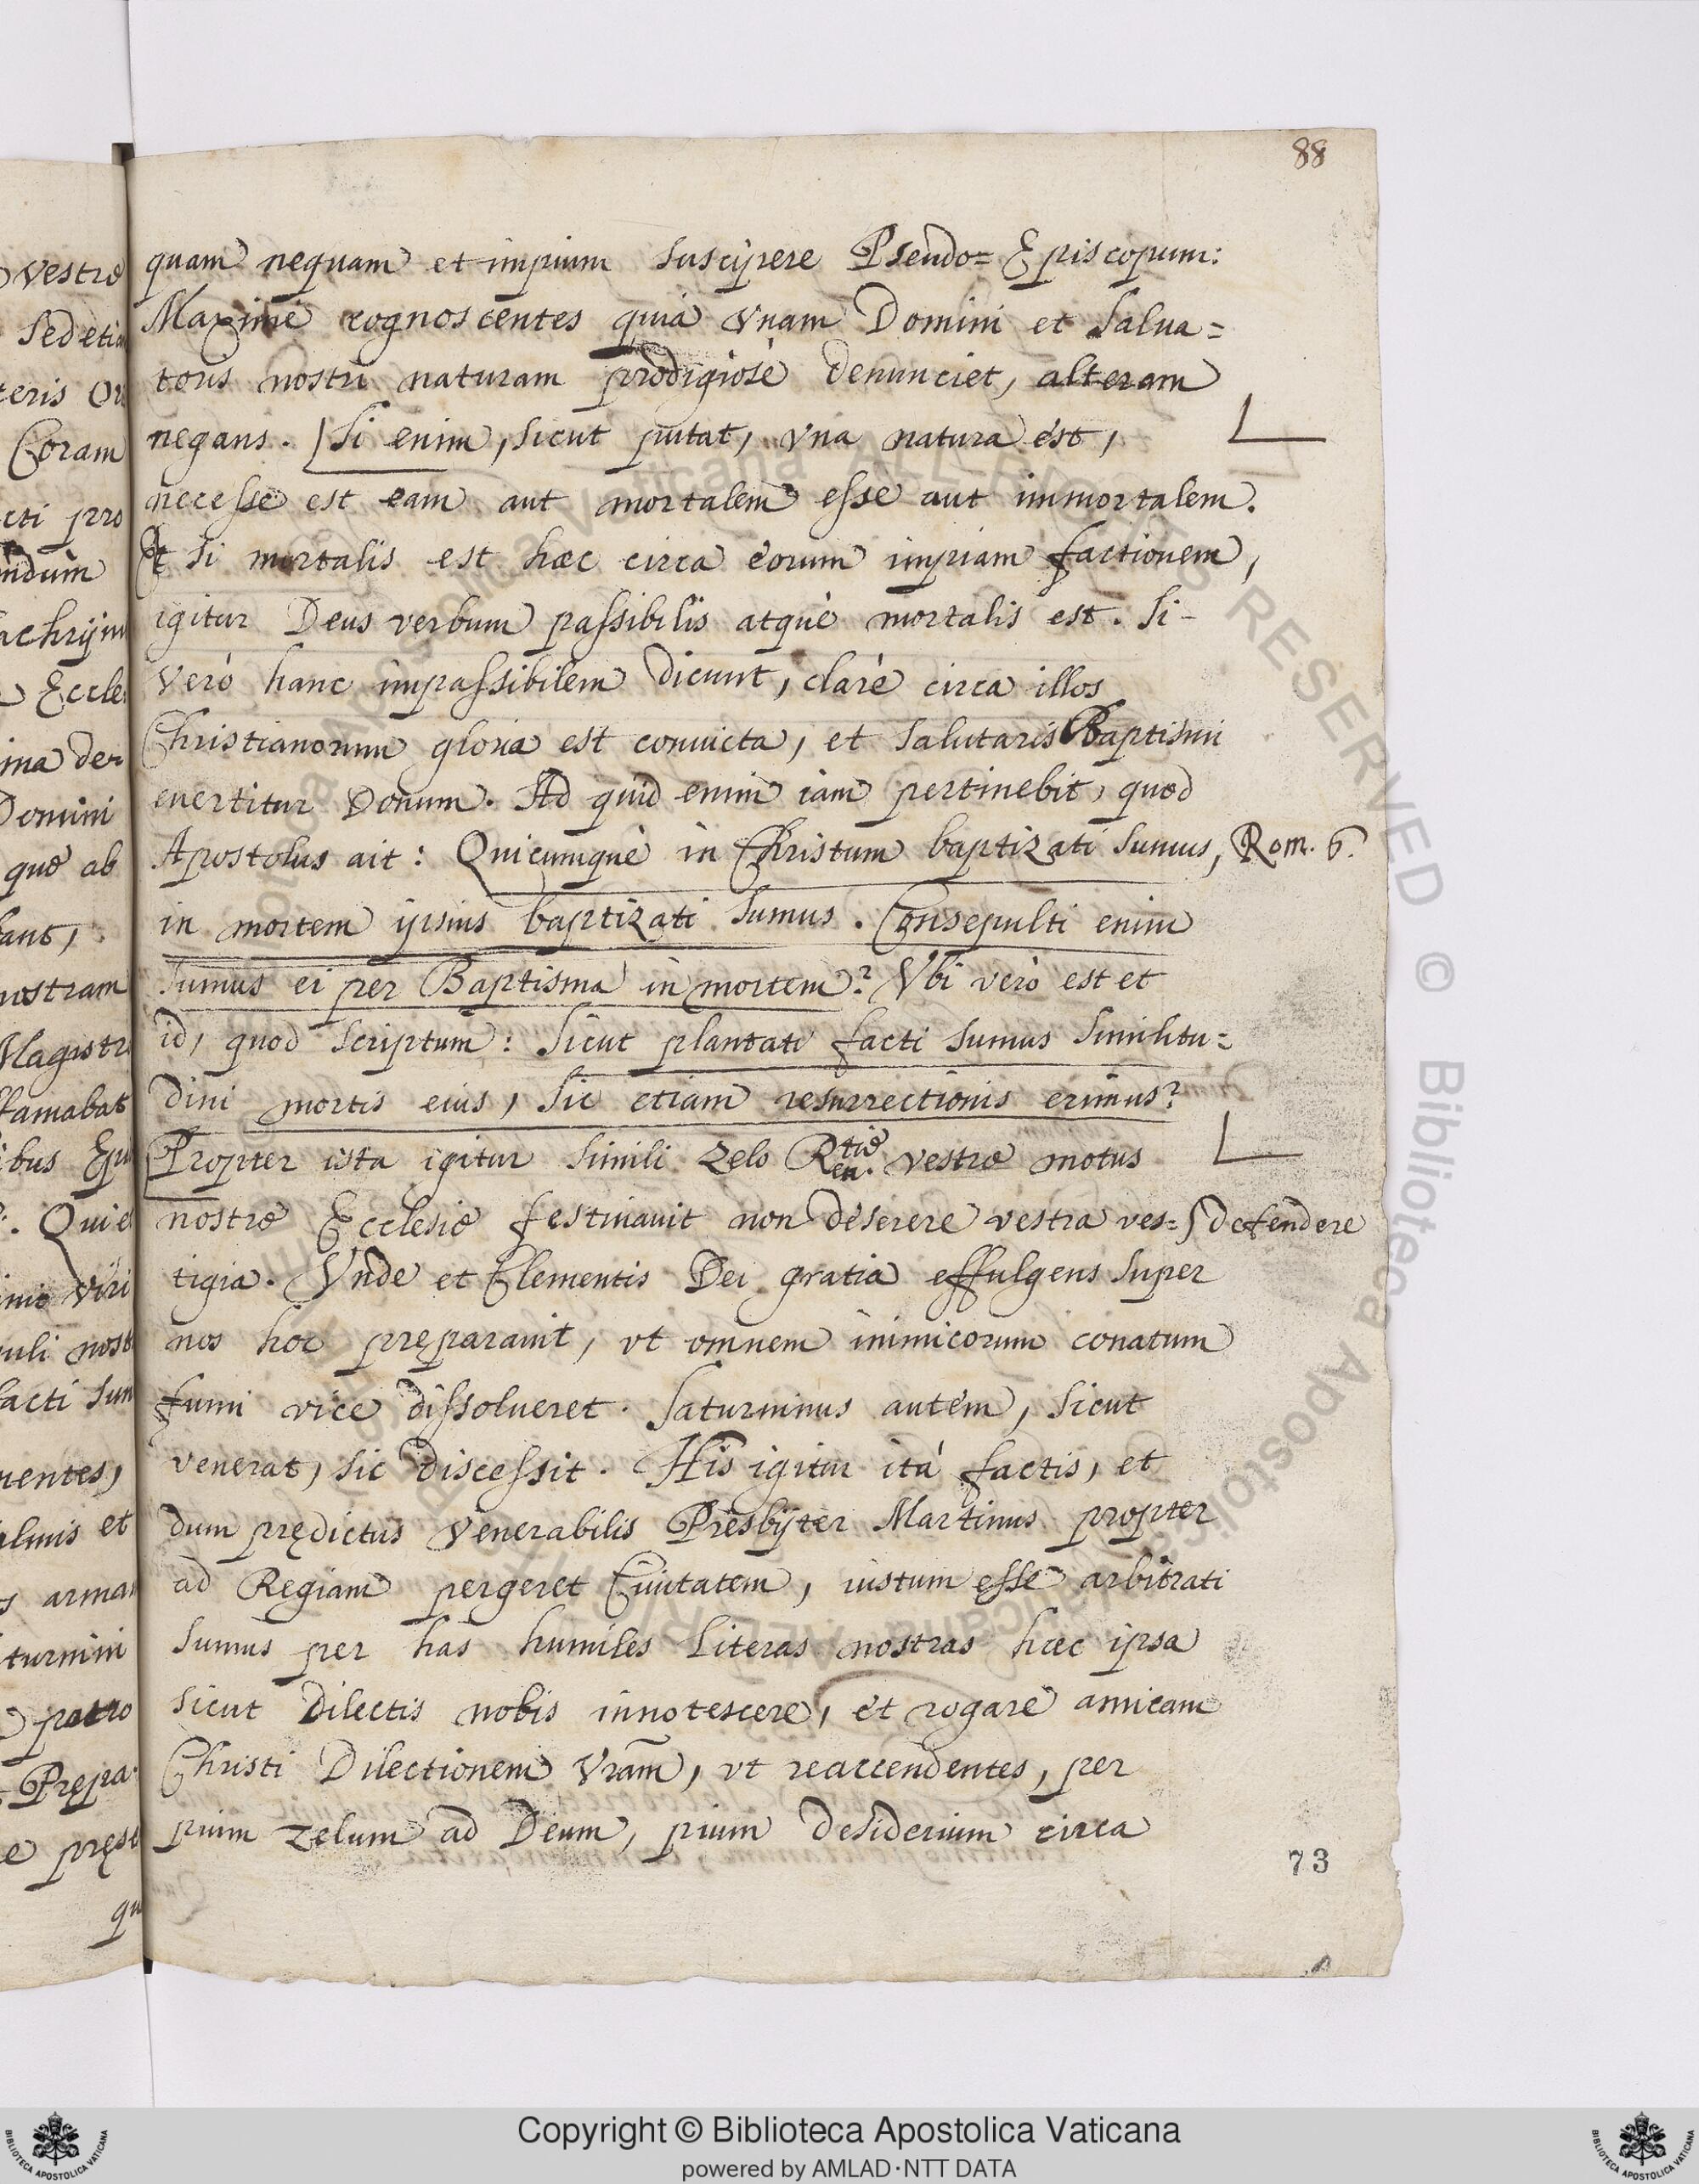 88
quam nequam et impium suscipere Pseudo= Episcopum:
Maximè cognoscentes quia Vnam Domini et Salua=
toris nostri naturam prodigiosè denunciet, alteram
negans. Si enim, sicut putat, vna natura est,
necesse est eam aut mortalem esse aut immortalem.
Et si mortalis est hæc circa eorum impiam factionem,
igitur Deus verbum passibilis atquè mortalis est. Si-
verò hanc impassibilem dicunt, clarè circa illos
Christianorum gloria est conuicta, et salutaris Baptismi
euertitur Donum. Ad quid enim iam pertinebit, quod
Apostolus ait: Quicumquè in Christum baptizati sumus, Rom. 6.
in mortem ipsius baptizati sumus. Consepulti enim
sumus ei per Baptisma in mortem? Vbi verò est et
id, quod scriptum: Sicut plantati facti sumus similitu=
dini mortis eius, sic etiam resurrectionis erimus?
Propter ista igitur simili zelo Reu.tiæ vestræ motus
nostræ Ecclesiæ festinauit non deserere vestra ves= defendere
tigia. Vnde et Clementis Dei gratia effulgens super
nos hoc pręparauit, vt omnem inimicorum conatum
fumi vice dissolueret. Saturninus autem, sicut
venerat, sic discessit. His igitur ità factis, et
dum prędictus Venerabilis Presbyter Martinus propter
ad Regiam pergeret Ciuitatem, iustum esse arbitrati
sumus per has humiles literas nostras hæc ipsa
sicut dilectis nobis innotescere, et rogare amicam
Christi Dilectionem Vram̃, vt reaccendentes, per
pium zelum ad Deum, pium desiderium circa
73
Copyright © Biblioteca Apostolica Vaticana
powered by AMLAD·NTT DATA